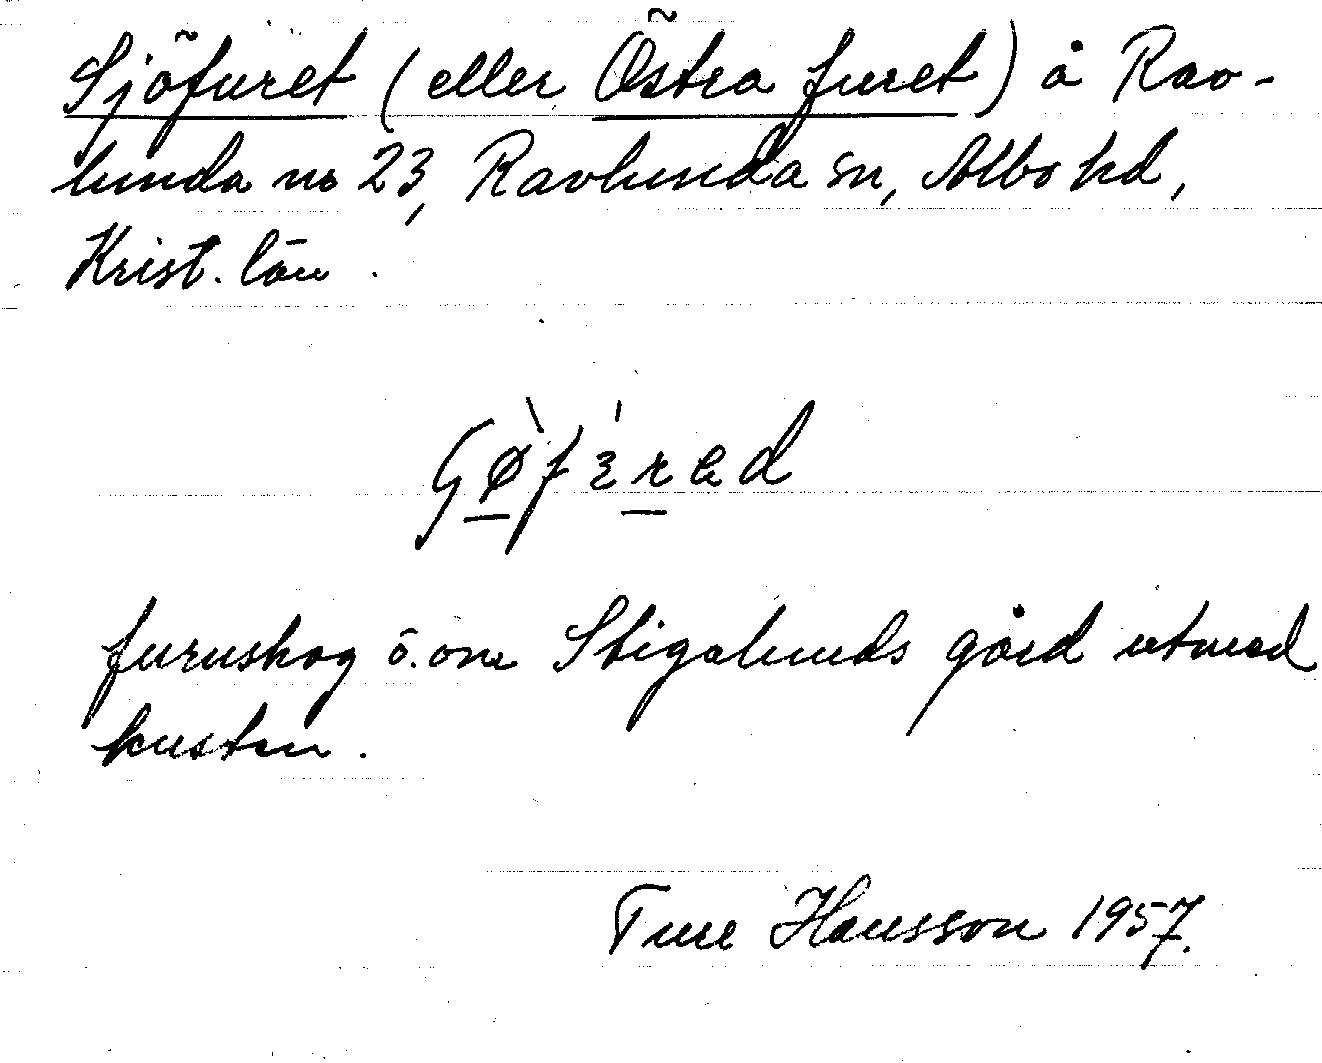 Sjöfuret (eller Östra furet) å Rav-
lunda no 23, Ravlunda sn, Albo hd,
Krist. län.
furuskog ö. om Stigalunds gård utmed
kusten.
Ture Hansson 1957.